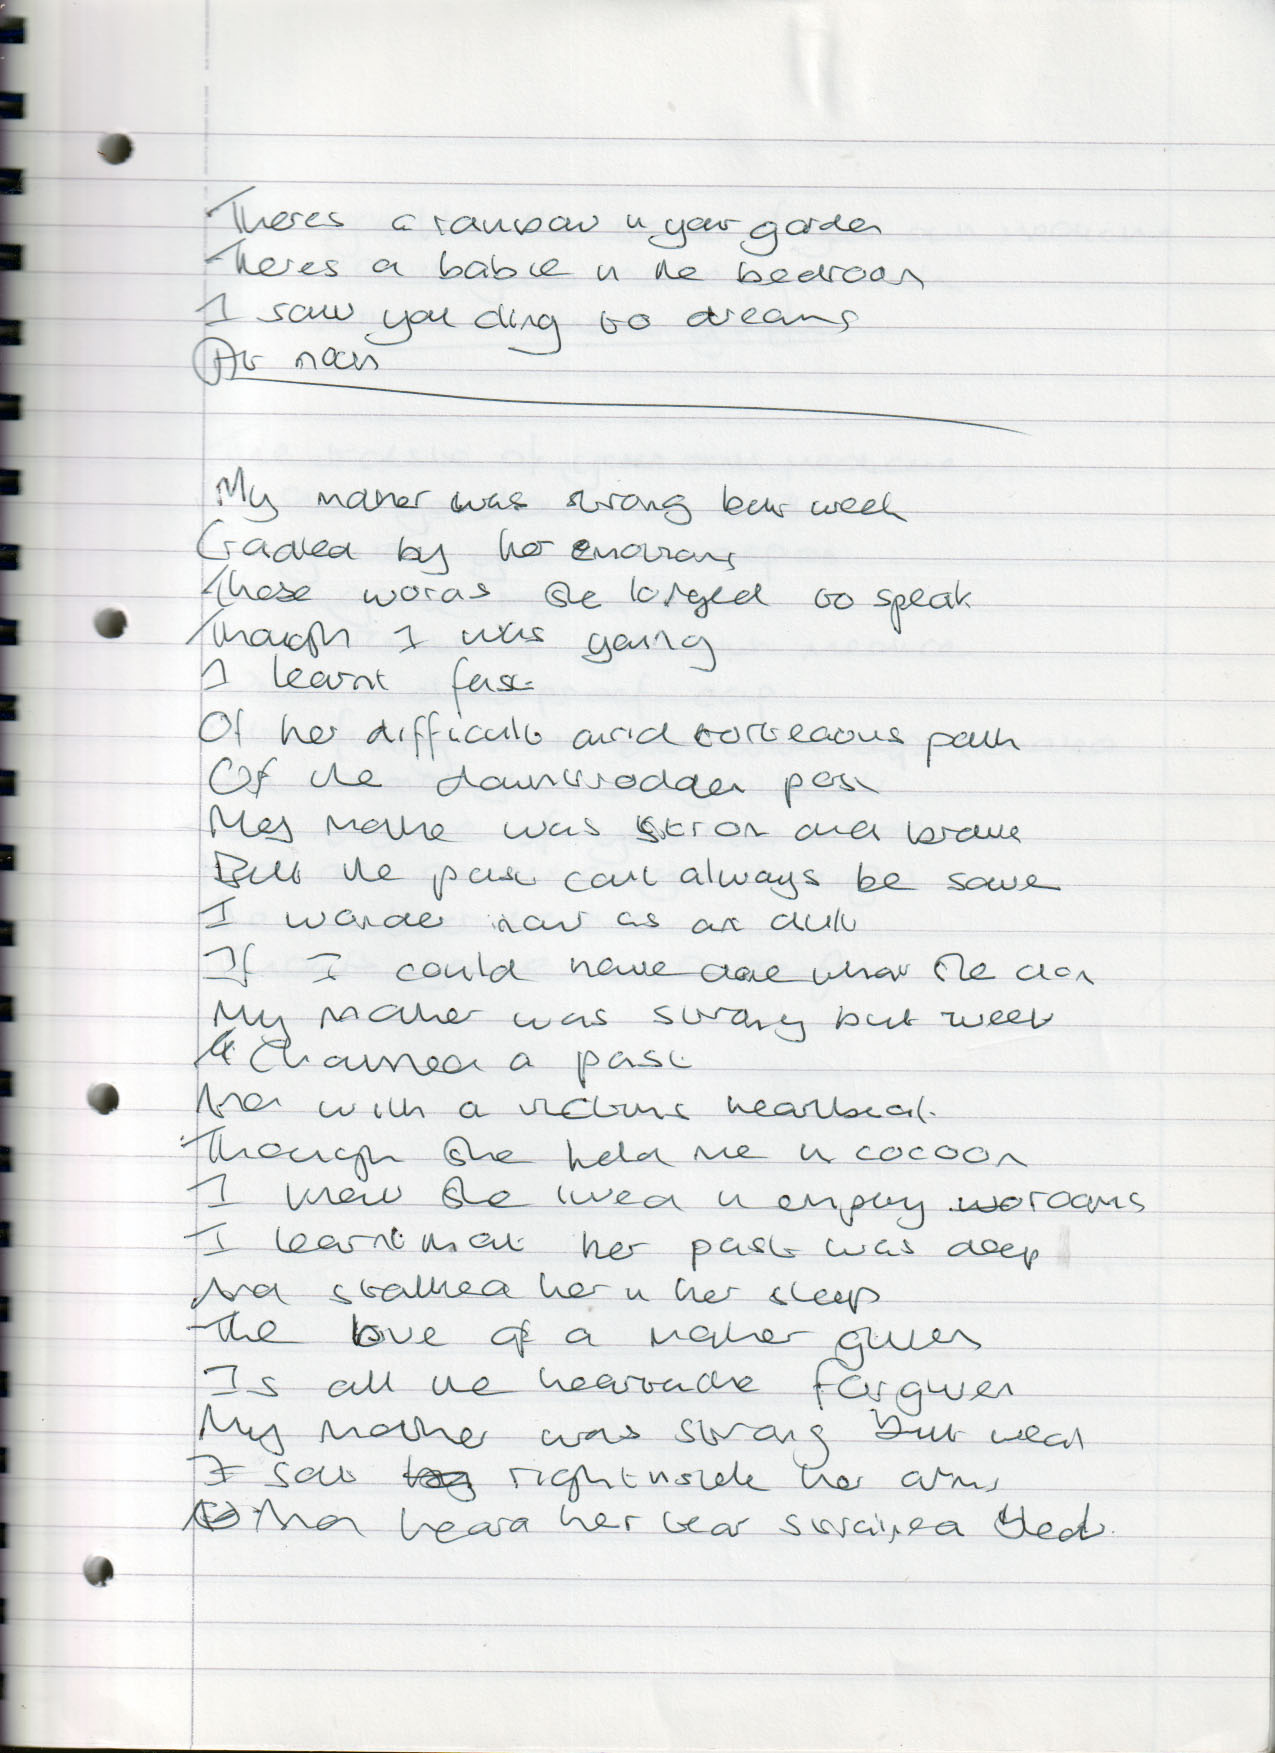 Theres a rainbow in your garden
Theres a babie in the bedroom
I saw you cling to dreams
At noon
My mother was strong but week
Cradled by her emotions
Those words she longed to speak
Though I was young
I learnt fast
Of her difficult and torteaous path
Of the downtrodden past
My mother was stron and brave
But the past cant always be save
I wonder now as an dult
If I could have done what she don
My mother was strong but week
Chained a past
And with a victims heartbeat
Though she held me in cocoon
I knew she lived in empty
I learnt that her past was deep
And stalked her in her sleep
The love of a mother given
Is all the heartache forgiven
My mother was strong but weak
I saw right inside her arms
And heard her tear strained